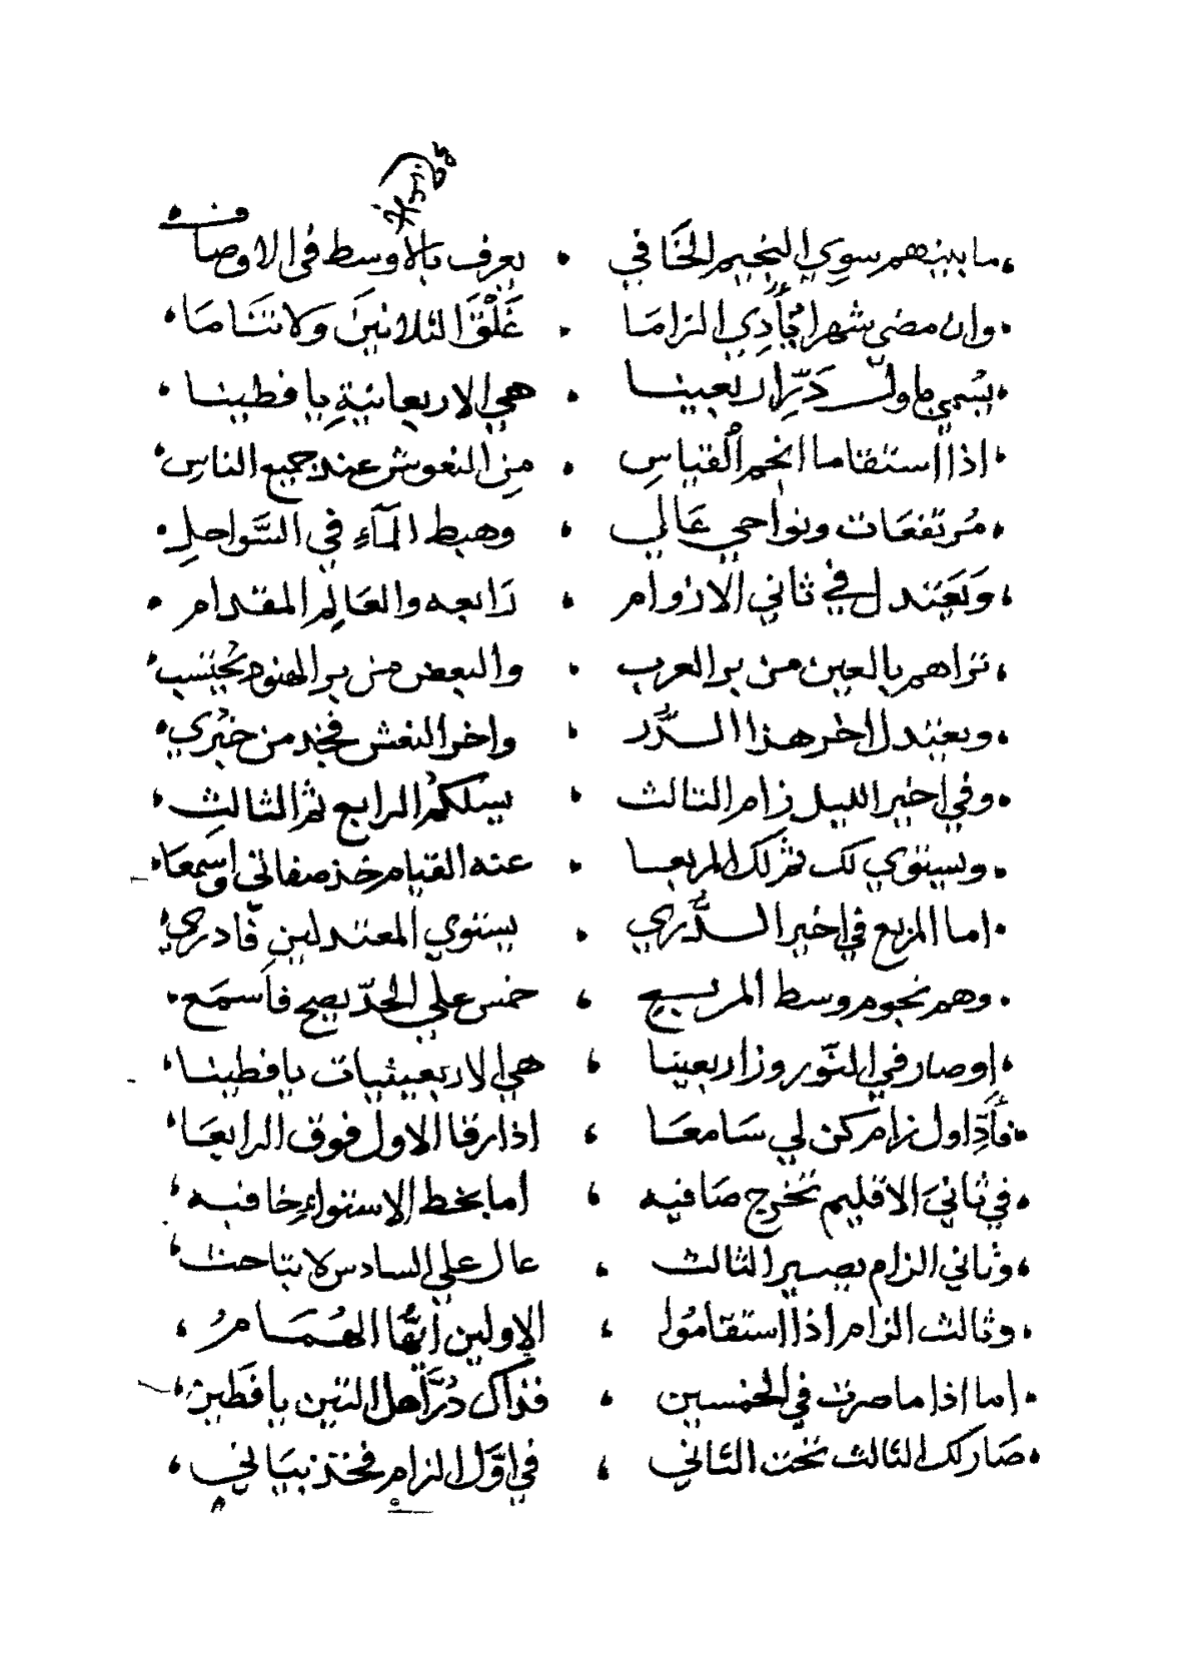 ما بينهم سوي النجيم الخافي ، يعرف بالاوسط في الاوصافه
وان مضي شهرا يُأدي الزاما ، غَلْقَ الثلاثين وَلا تتناما
يُسْمي باولٍ دَرِّ اربعينا ، هي الاربعانيةِ يا فطينا
اذا استقاما انجم القياسِ ، مِن النعوش عند جميع الناس
مُرتفعَات ونواحي عَالي ، وهبط المآءِ في السَّواحلِ
وَيَعتدل في ثاني الازوام ، رَابعه والعَالِم المقدام
تراهم بالعين من بر العرب ، والبعض من بر الهنود يُجتنب
ويعتدل اخر هذا الدُّر ، واخر النعش فخذ من خُبْري
وفي اخير الليل زام الثالث ، يسلكُم الرابع ثم الثالثِ
ويستوي لك ثم لك المربعا ، عنه القيام خذ صفاتي واسمعَا
اما المربع في اخير الدُّري ، يستوي المعتدلين فادري
وهم نجوم وسط المربع ، خمس علي الحدّ يصح فاَسمَع
اِوصار في النَّوروز اربعينا ، هي الاربعينيات يا فطينا
فأَدِّ اول زام كن لي سَامعَا ، اذا رقا الاول فوق الرابعَا
في ثانيَ الاقليم تخرج صَافيه ، أما بخط الاستواءِ خافيه
وثاني الزام يصير الثالث ، عال علي السادس لا تباحث
وثالث الزام اذا استقامُوا ، الاولين اَيُّها الهُمَامُ
اما اذا ما صرت في الخمسين ، فذاك دُرَّ اهل التين يا فطين
صَار لك الثالث تحت الثاني ، في اوَّل الزام فخذ بيَاني